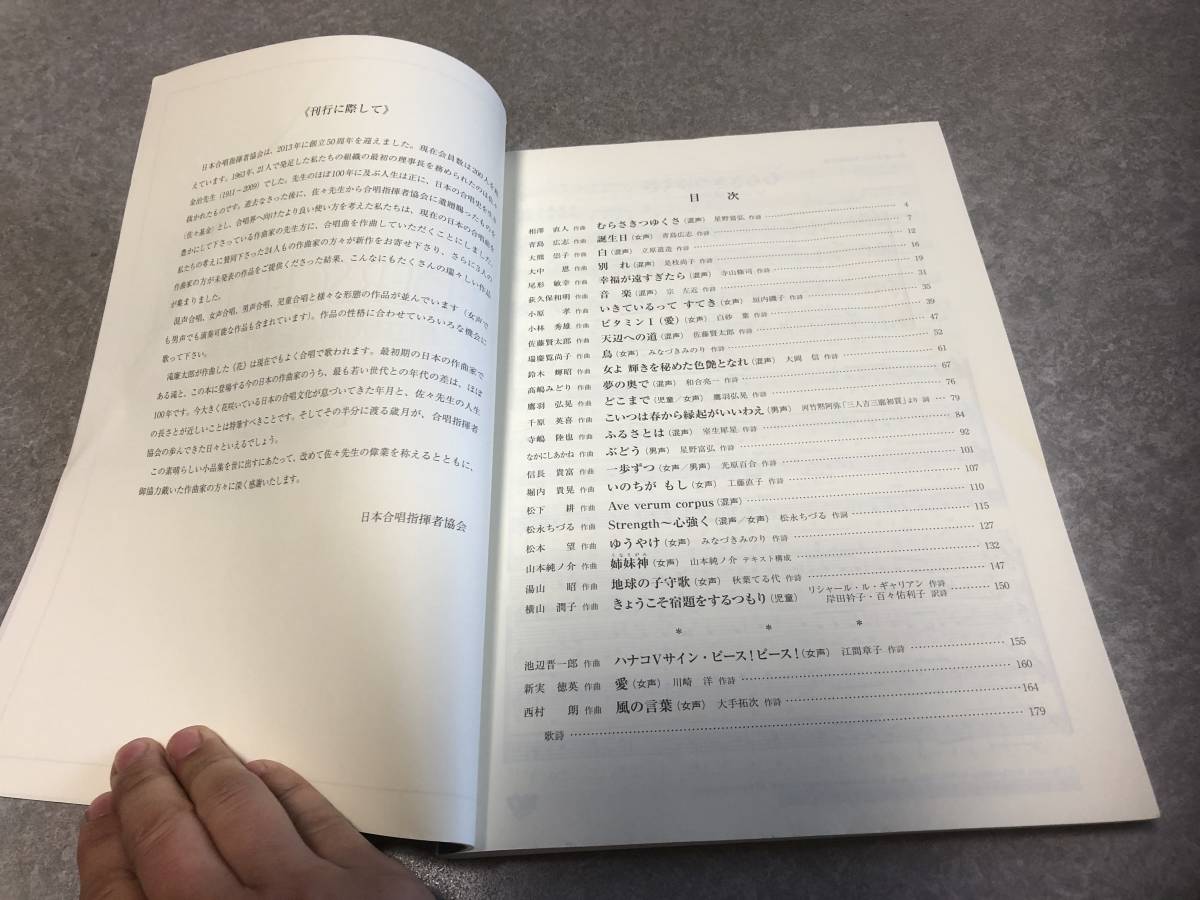 《刊行に際して》
日本合唱指揮者協会は、2013年に創立50周年を迎えました。現在会員数は200人を
えています。1963年、21人で発足した私たちの組織の最初の理事長を務められたのは
金治先生（1911～2009）でした。先生のほぼ100年に及ぶ人生は正に、日本の合唱史を
抜かれたものです。逝去なさった後に、佐々先生から合唱指揮者協会に遺贈賜ったものを
（佐々基金）とし、合唱界へ向けたより良い使い方を考えた私たちは、現在の日本の合唱曲を
豊かにして下さっている作曲家の先生方に、合唱曲を作曲していただくことにしました。
私たちの考えに賛同下さった24人もの作曲家の方々が新作をお寄せ下さり、さらに3人の
作曲家の方が未発表の作品をご提供くださった結果、こんなにもたくさんの瑞々しい作品
が集まりました。
混声合唱、女声合唱、男声合唱、児童合唱と様々な形態の作品が並んでいます（女声で
も男声でも演奏可能な作品も含まれています）。作品の性格に合わせていろいろな機会に
歌って下さい。
滝廉太郎が作曲した《花》は現在でもよく合唱で歌われます。最初期の日本の作曲家で
ある滝と、この本に登場する今の日本の作曲家のうち、最も若い世代との年代の差は、ほぼ
100年です。今大きく花咲いている日本の合唱文化が息づいてきた年月と、佐々先生の人生
の長さとが近しいことは特筆すべきことです。そしてその半分に渡る歳月が、合唱指揮者
協会の歩んできた日々といえるでしょう。
この素晴らしい小品集を世に出すにあたって、改めて佐々先生の偉業を称えるとともに、
御協力戴いた作曲家の方々に深く感謝いたします。
日本合唱指揮者協会
目 次
相澤 直人 作曲 むらさきつゆくさ（混声） 星野富弘 作詩 4
青島 広志 作曲 誕生日（女声） 青島広志 作詩 7
大熊 崇子 作曲 白（混声） 立原道造 作詩 12
大中 恩 作曲 別 れ（混声） 是枝尚子 作詩 16
尾形 敏幸 作曲 幸福が遠すぎたら（混声） 寺山修司 作詩 19
荻久保和明 作曲 音 楽（混声） 宗 左近 作詩 31
小原 孝 作曲 いきているって すてき（女声） 垣内磯子 作詩 35
小林 秀雄 作曲 ビタミンI（愛）（女声） 白砂 葉 作詩 39
佐藤賢太郎 作曲 天辺への道（混声） 佐藤賢太郎 作詩 47
瑞慶覧尚子 作曲 鳥（女声） みなづきみのり 作詩 52
鈴木 輝昭 作曲 女よ 輝きを秘めた色艶となれ（混声） 大岡 信 作詩 61
高嶋みどり 作曲 夢の奥で（混声） 和合亮一 作詩 67
鷹羽 弘晃 作曲 どこまで（児童／女声） 鷹羽弘晃 作詩 76
千原 英喜 作曲 こいつは春から縁起がいいわえ（男声） 河竹黙阿弥「三人吉三廓初買」より 詞 79
寺嶋 陸也 作曲 ふるさとは（混声） 室生犀星 作詩 84
なかにしあかね 作曲 ぶどう（男声） 星野富弘 作詩 92
信長 貴富 作曲 一歩ずつ（女声／男声） 光原百合 作詩 101
堀内 貴晃 作曲 いのちが もし（女声） 工藤直子 作詩 107
松下 耕 作曲 Ave verum corpus（混声） 110
松永ちづる 作曲 Strength～心強く（混声／女声） 松永ちづる 作詞 115
松本 望 作曲 ゆうやけ（女声） みなづきみのり 作詩 127
山本純ノ介 作曲 姉妹神（女声） 山本純ノ介 テキスト構成 132
湯山 昭 作曲 地球の子守歌（女声） 秋葉てる代 作詩 147
横山 潤子 作曲 きょうこそ宿題をするつもり（児童） リシャール・ル・ギャリアン 作詩 岸田衿子・百々佑利子 訳詩 150
＊ ＊ ＊
池辺晋一郎 作曲 ハナコVサイン・ピース！ピース！（女声） 江間章子 作詩 155
新実 徳英 作曲 愛（女声） 川崎 洋 作詩 160
西村 朗 作曲 風の言葉（女声） 大手拓次 作詩 164
歌詩 179